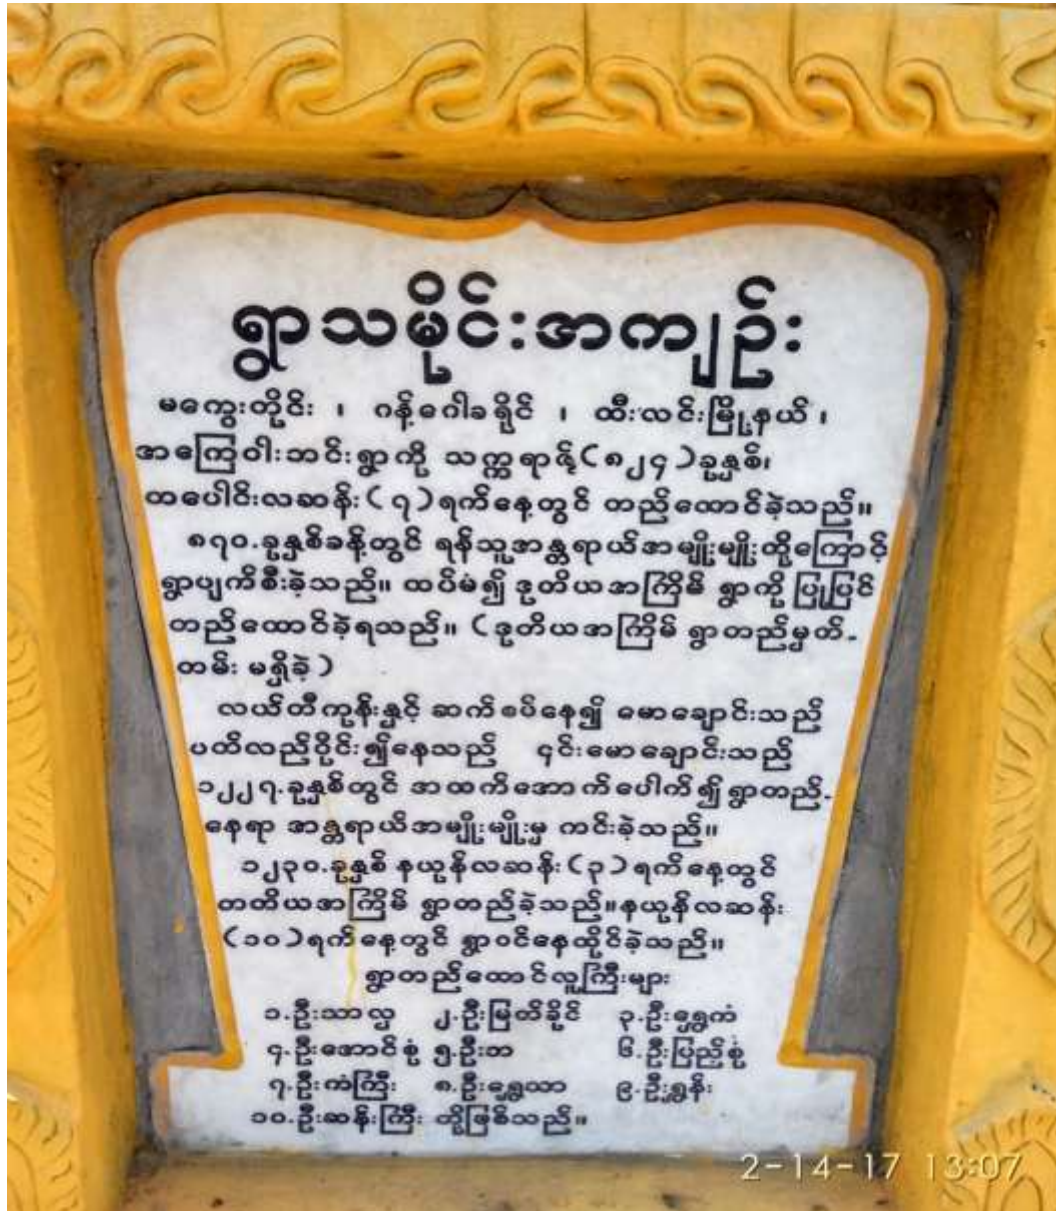 ရွာသမိုင်းအကျဉ်း
မကွေးတိုင်း ၊ ဂန့်ဂေါခရိုင် ၊ ထီးလင်းမြို့နယ် ၊
အကြေဝါးဘင်းရွာကို သက္ကရာဇ်(၈၂၄)ခုနှစ်၊
တပေါင်းလဆန်း(၇)ရက်နေ့တွင် တည်ထောင်ခဲ့သည်။
၈၇၀.ခုနှစ်ခန့်တွင် ရန်သူအန္တရာယ်အမျိုးမျိုးတို့ကြောင့်
ရွာပျက်စီးခဲ့သည်။ ထပ်မံ၍ ဒုတိယအကြိမ် ရွာကို ပြုပြင်
တည်ထောင်ခဲ့ရသည်။ (ဒုတိယအကြိမ် ရွာတည်မှတ်-
တမ်း မရှိခဲ့)
လယ်တီကုန်းနှင့် ဆက်စပ်နေ၍ မောချောင်းသည်
ပတ်လည်ဝိုင်း၍နေသည် ၄င်းမောချောင်းသည်
၁၂၂၇.ခုနှစ်တွင် အထက်အောက်ပေါက်၍ရွာတည်-
နေရာ အန္တရာယ်အမျိုးမျိုးမှ ကင်းခဲ့သည်။
၁၂၃၀.ခုနှစ် နယုန်လဆန်း(၃)ရက်နေ့တွင်
တတိယအကြိမ် ရွာတည်ခဲ့သည်။နယုန်လဆန်း
(၁၀)ရက်နေ့တွင် ရွာဝင်နေထိုင်ခဲ့သည်။
ရွာတည်ထောင်လူကြီးများ
၁.ဦးသာလှ ၂.ဦးမြတ်ခိုင် ၃.ဦးရွှေကံ
၄.ဦးအောင်စုံ ၅.ဦးဘ ၆.ဦးပြည်စုံ
၇.ဦးကံကြီး ၈.ဦးရွှေသာ ၉.ဦးရွှန်း
၁၀.ဦးဆန်းကြီး တို့ဖြစ်သည်။
2-14-17 13:07